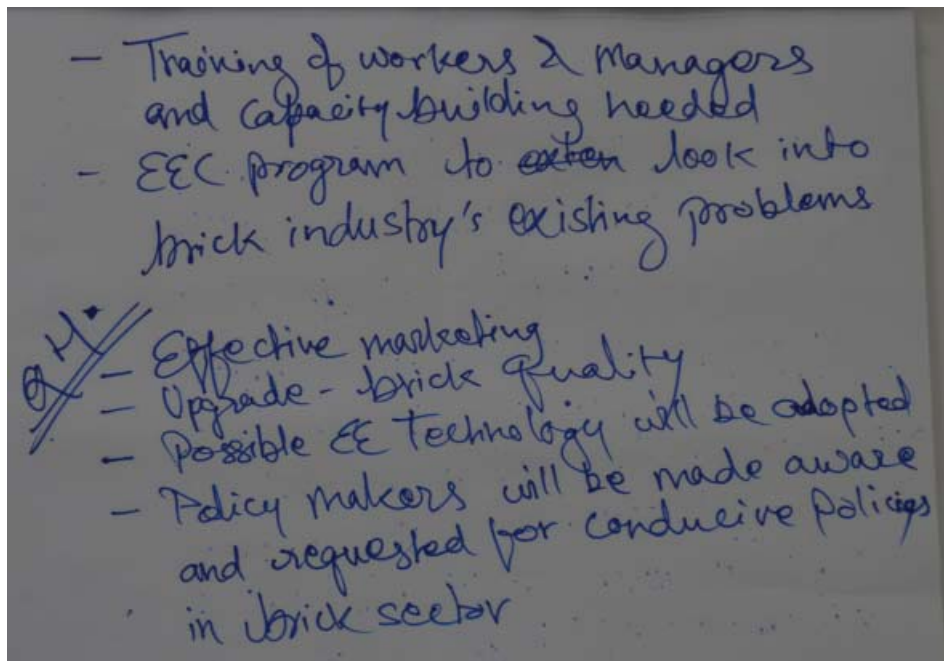 - Training of workers & Managers
and capacity building needed
- EEC program to look into
brick industry's existing problems
- Effective marketing
- Upgrade - brick quality
- Possible EE Technology will be adopted
- Policy makers will be made aware
and requested for conducive policies
in brick sector